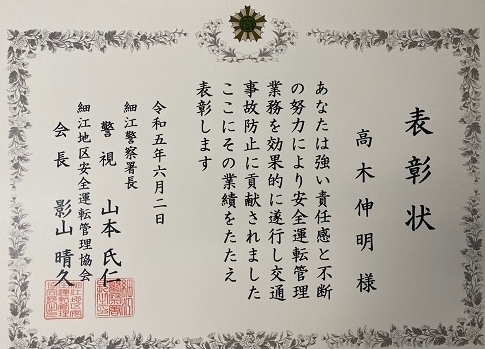 表彰状
高木伸明様
あなたは強い責任感と不断
の努力により安全運転管理
業務を効果的に遂行し交通
事故防止に貢献されました
ここにその業績をたたえ
表彰します
令和五年六月二日
細江警察署長
警視 山本氏仁
細江地区安全運転管理協会
会長 影山晴久